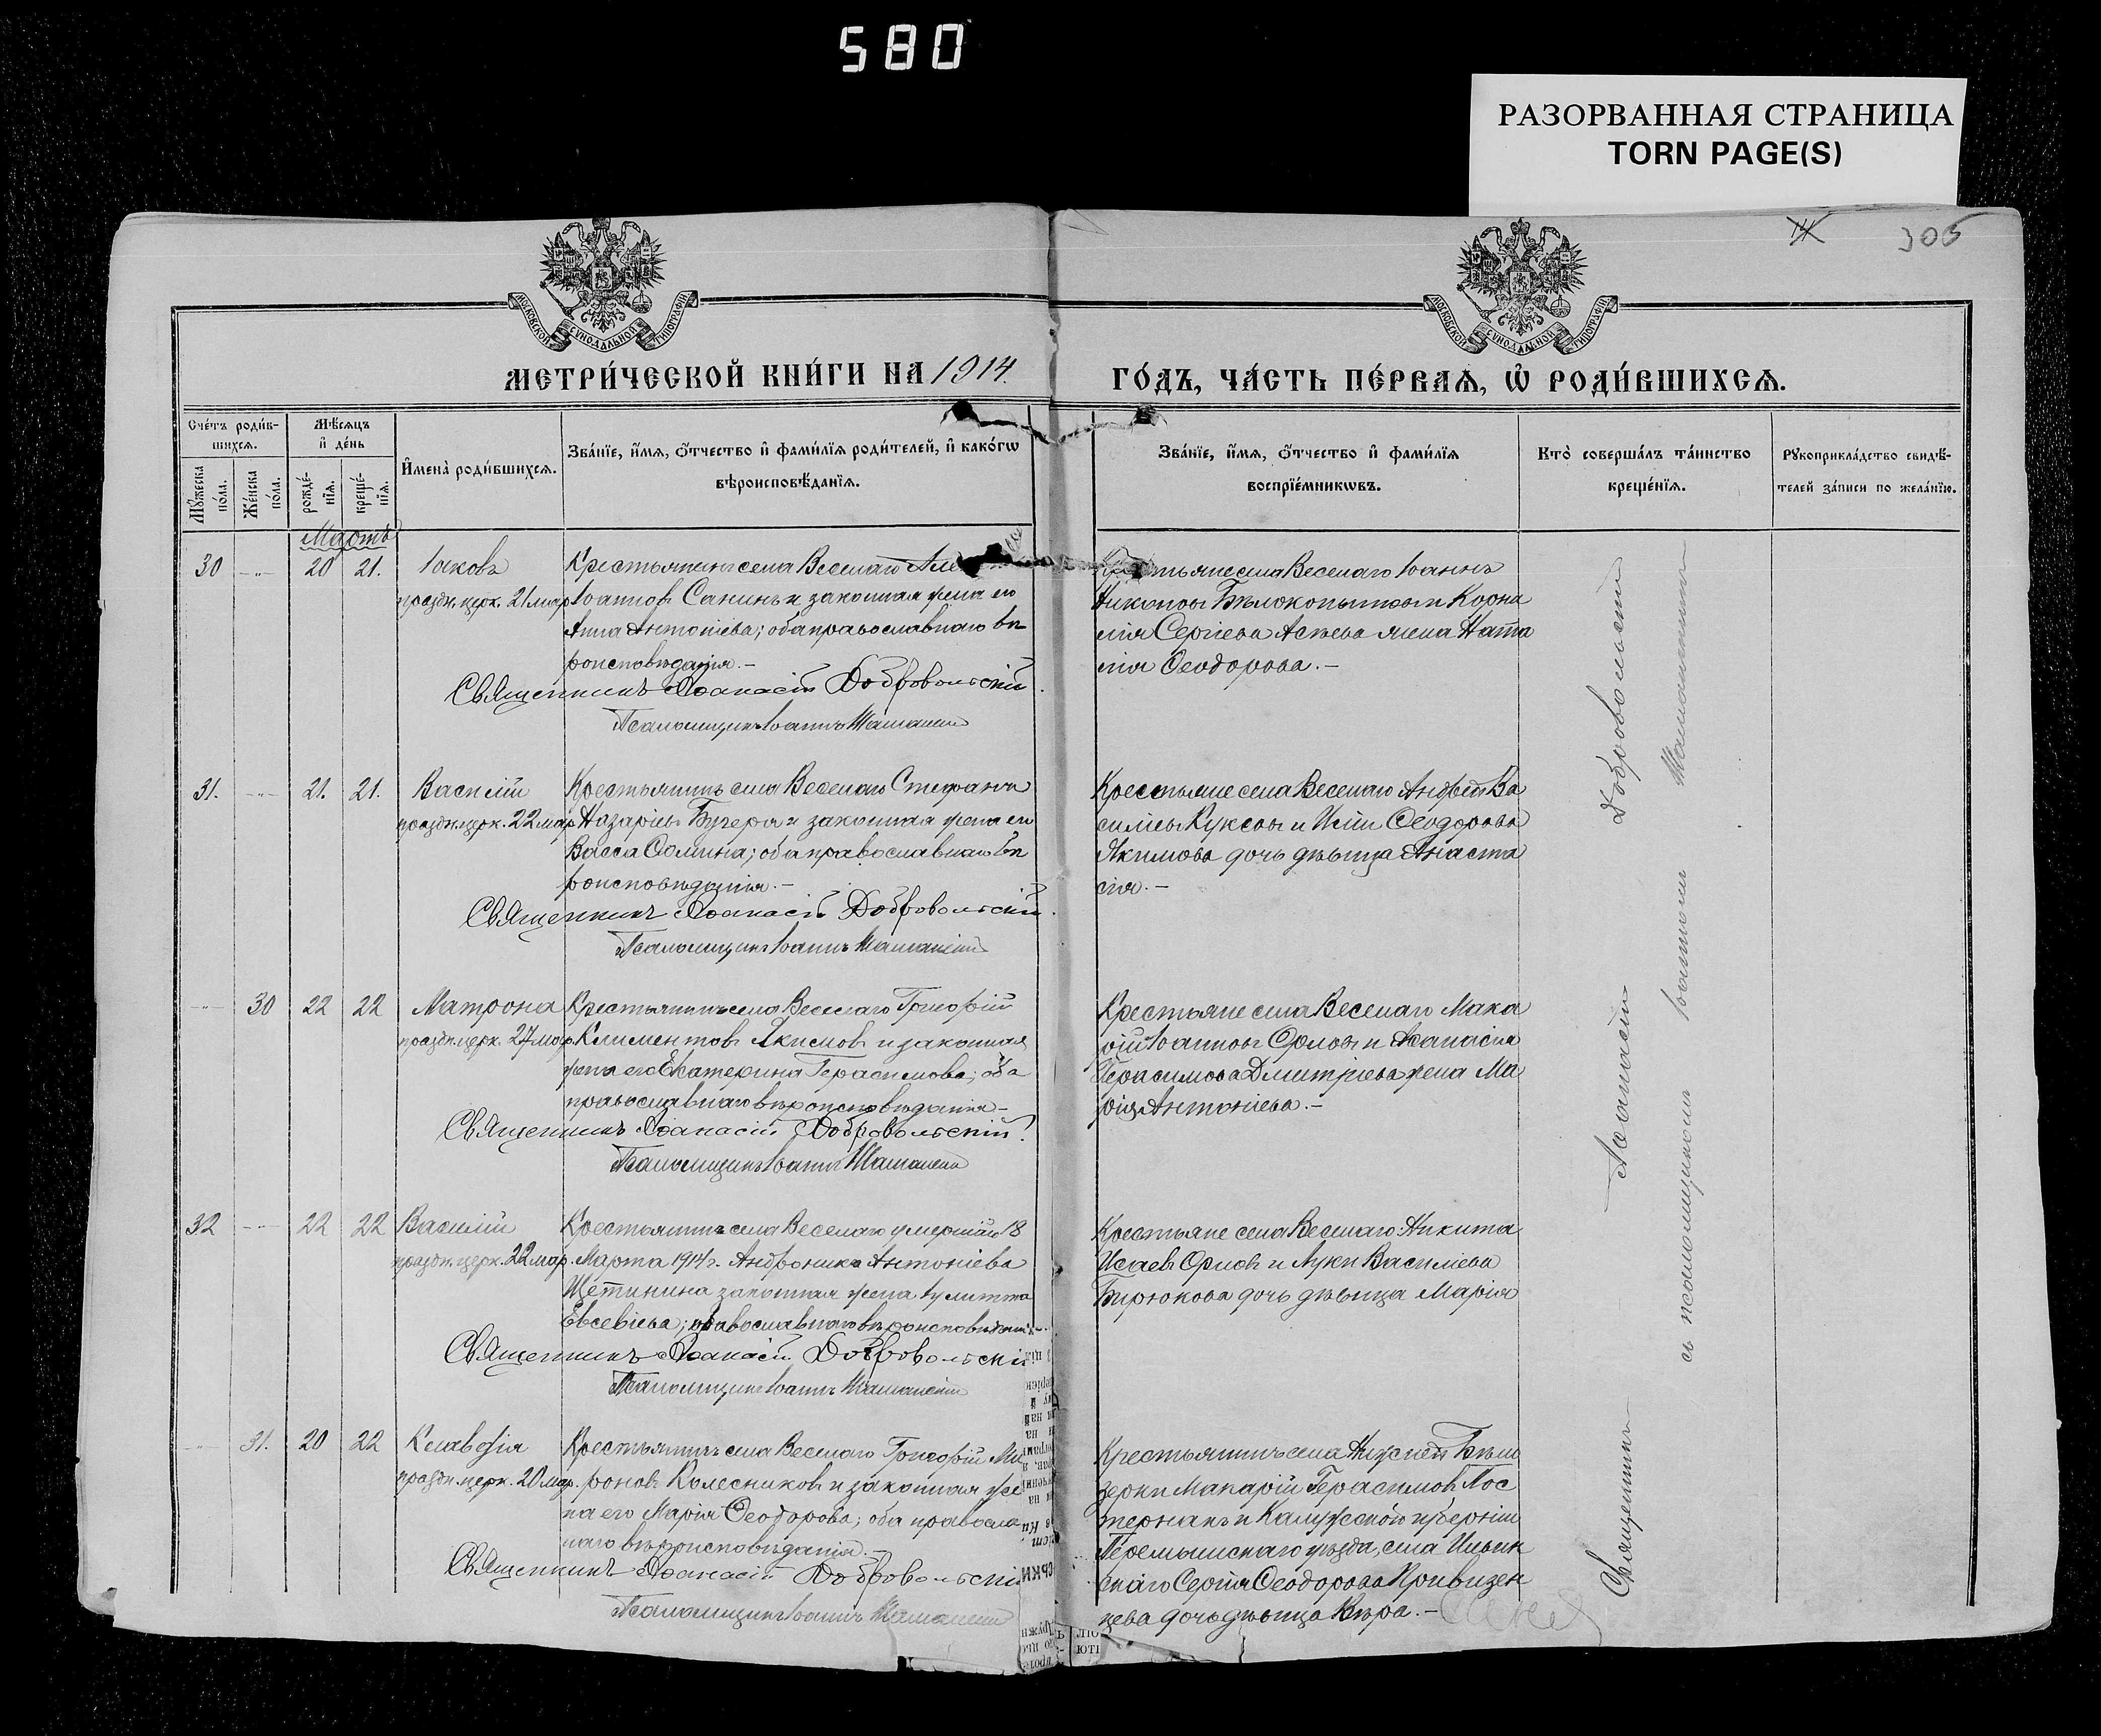 580
РАЗОРВАННАЯ СТРАНИЦА
TORN PAGE(S)
14
306
МОСКОВСКОЙ СѴНОДАЛЬНОЙ ТИПОГРАФІИ
МОСКОВСКОЙ СѴНОДАЛЬНОЙ ТИПОГРАФІИ
МЕТРИ́ЧЕСКОЙ КНИ́ГИ НА 1914.
ГО́ДЪ, ЧА́СТЬ ПЕ́РВАѦ, Ѽ РОДИ́ВШИХСѦ.
Сче́тъ роди́в-
шихсѧ.
Мѣ́сѧцъ
и҆ де́нь
Мꙋ́жеска
по́ла.
Же́нска
по́ла.
рожде́-
нїѧ.
креще́-
нїѧ.
И҆мена̀ роди́вшихсѧ.
Зва́нїе, и҆́мѧ, ѻ҆́тчество и҆ фами́лїѧ роди́телей, и҆ како́гѡ
вѣроисповѣ́данїѧ.
Зва́нїе, и҆́мѧ, ѻ҆́тчество и҆ фами́лїѧ
воспрїе́мникѡвъ.
Кто̀ соверша́лъ та́инство
креще́нїѧ.
Рꙋкоприкла́дство свидѣ́-
телей за́писи по жела́нїю.
Мартъ
30 -"- 20 21. Іаковъ
праздн. церк. 21 мар
Крестьянинъ села Веселаго Але
Іоанновъ Санинъ и законная жена его
Анна Антоніева; оба православнаго вѣ
роисповѣданія.-
Священникъ Аѳанасій Добровольскій.
Псаломщикъ Іоаннъ
Крестьяне села Веселаго Іоаннъ
Никоновъ Бѣлокопытовъ и Корни
лія Сергіева Асѣева жена Ната
лія Ѳеодорова.-
31. -"- 21. 21. Василій
праздн. церк. 22 мар
Крестьянинъ села Веселаго Стефанъ
Назаріевъ и законная жена его
Васса Ѳомина; оба православнаго вѣ
роисповѣданія.-
Священникъ Аѳанасій Добровольскій.
Псаломщикъ Іоаннъ
Крестьяне села Веселаго Андрей Ва
силіевъ Куксовъ и Иліи Ѳеодорова
Якимова дочь дѣвица Анаста
сія.-
-"- 30 22 22 Матрона
праздн. церк. 27 мар
Крестьянинъ села Веселаго Григорій
Климентовъ Якимовъ и законная
жена его Екатерина Герасимова; оба
православнаго вѣроисповѣданія-
Священникъ Аѳанасій Добровольскій.
Псаломщикъ Іоаннъ
Крестьяне села Веселаго Мака
рій Іоанновъ Орловъ и Аѳанасія
Герасимова Дмитріева жена Ма
рія Антоніева.-
32 -"- 22 22 Василій
праздн. церк. 22 мар.
Крестьянина села Веселаго умершаго 18
Марта 1914 г. Андроника Антоніева
Щетинина законная жена Іулитта
Евсевіева; православнаго вѣроисповѣданія-
Священникъ Аѳанасій Добровольскій
Псаломщикъ Іоаннъ
Крестьяне села Веселаго: Никита
Исаевъ Орловъ и Луки Василіева
Бирюкова дочь дѣвица Марія
-"- 31. 20 22 Клавдія
праздн. церк. 20 мар.
Крестьянинъ села Веселаго Григорій Ми
роновъ Колесниковъ и законная же
на его Марія Ѳеодорова; оба правосла
наго вѣроисповѣданія.-
Священникъ Аѳанасій Добровольскій
Псаломщикъ Іоаннъ
Крестьянинъ села Нижней
Макарій Герасимовъ Пос
и Калужской губерніи
Перемышскаго уѣзда, села Ильин
скаго Сергія Ѳеодорова
дочь дѣвица Вѣра.-
Священникъ Аѳанасій Добровольскій
съ псаломщикомъ Іоанномъ